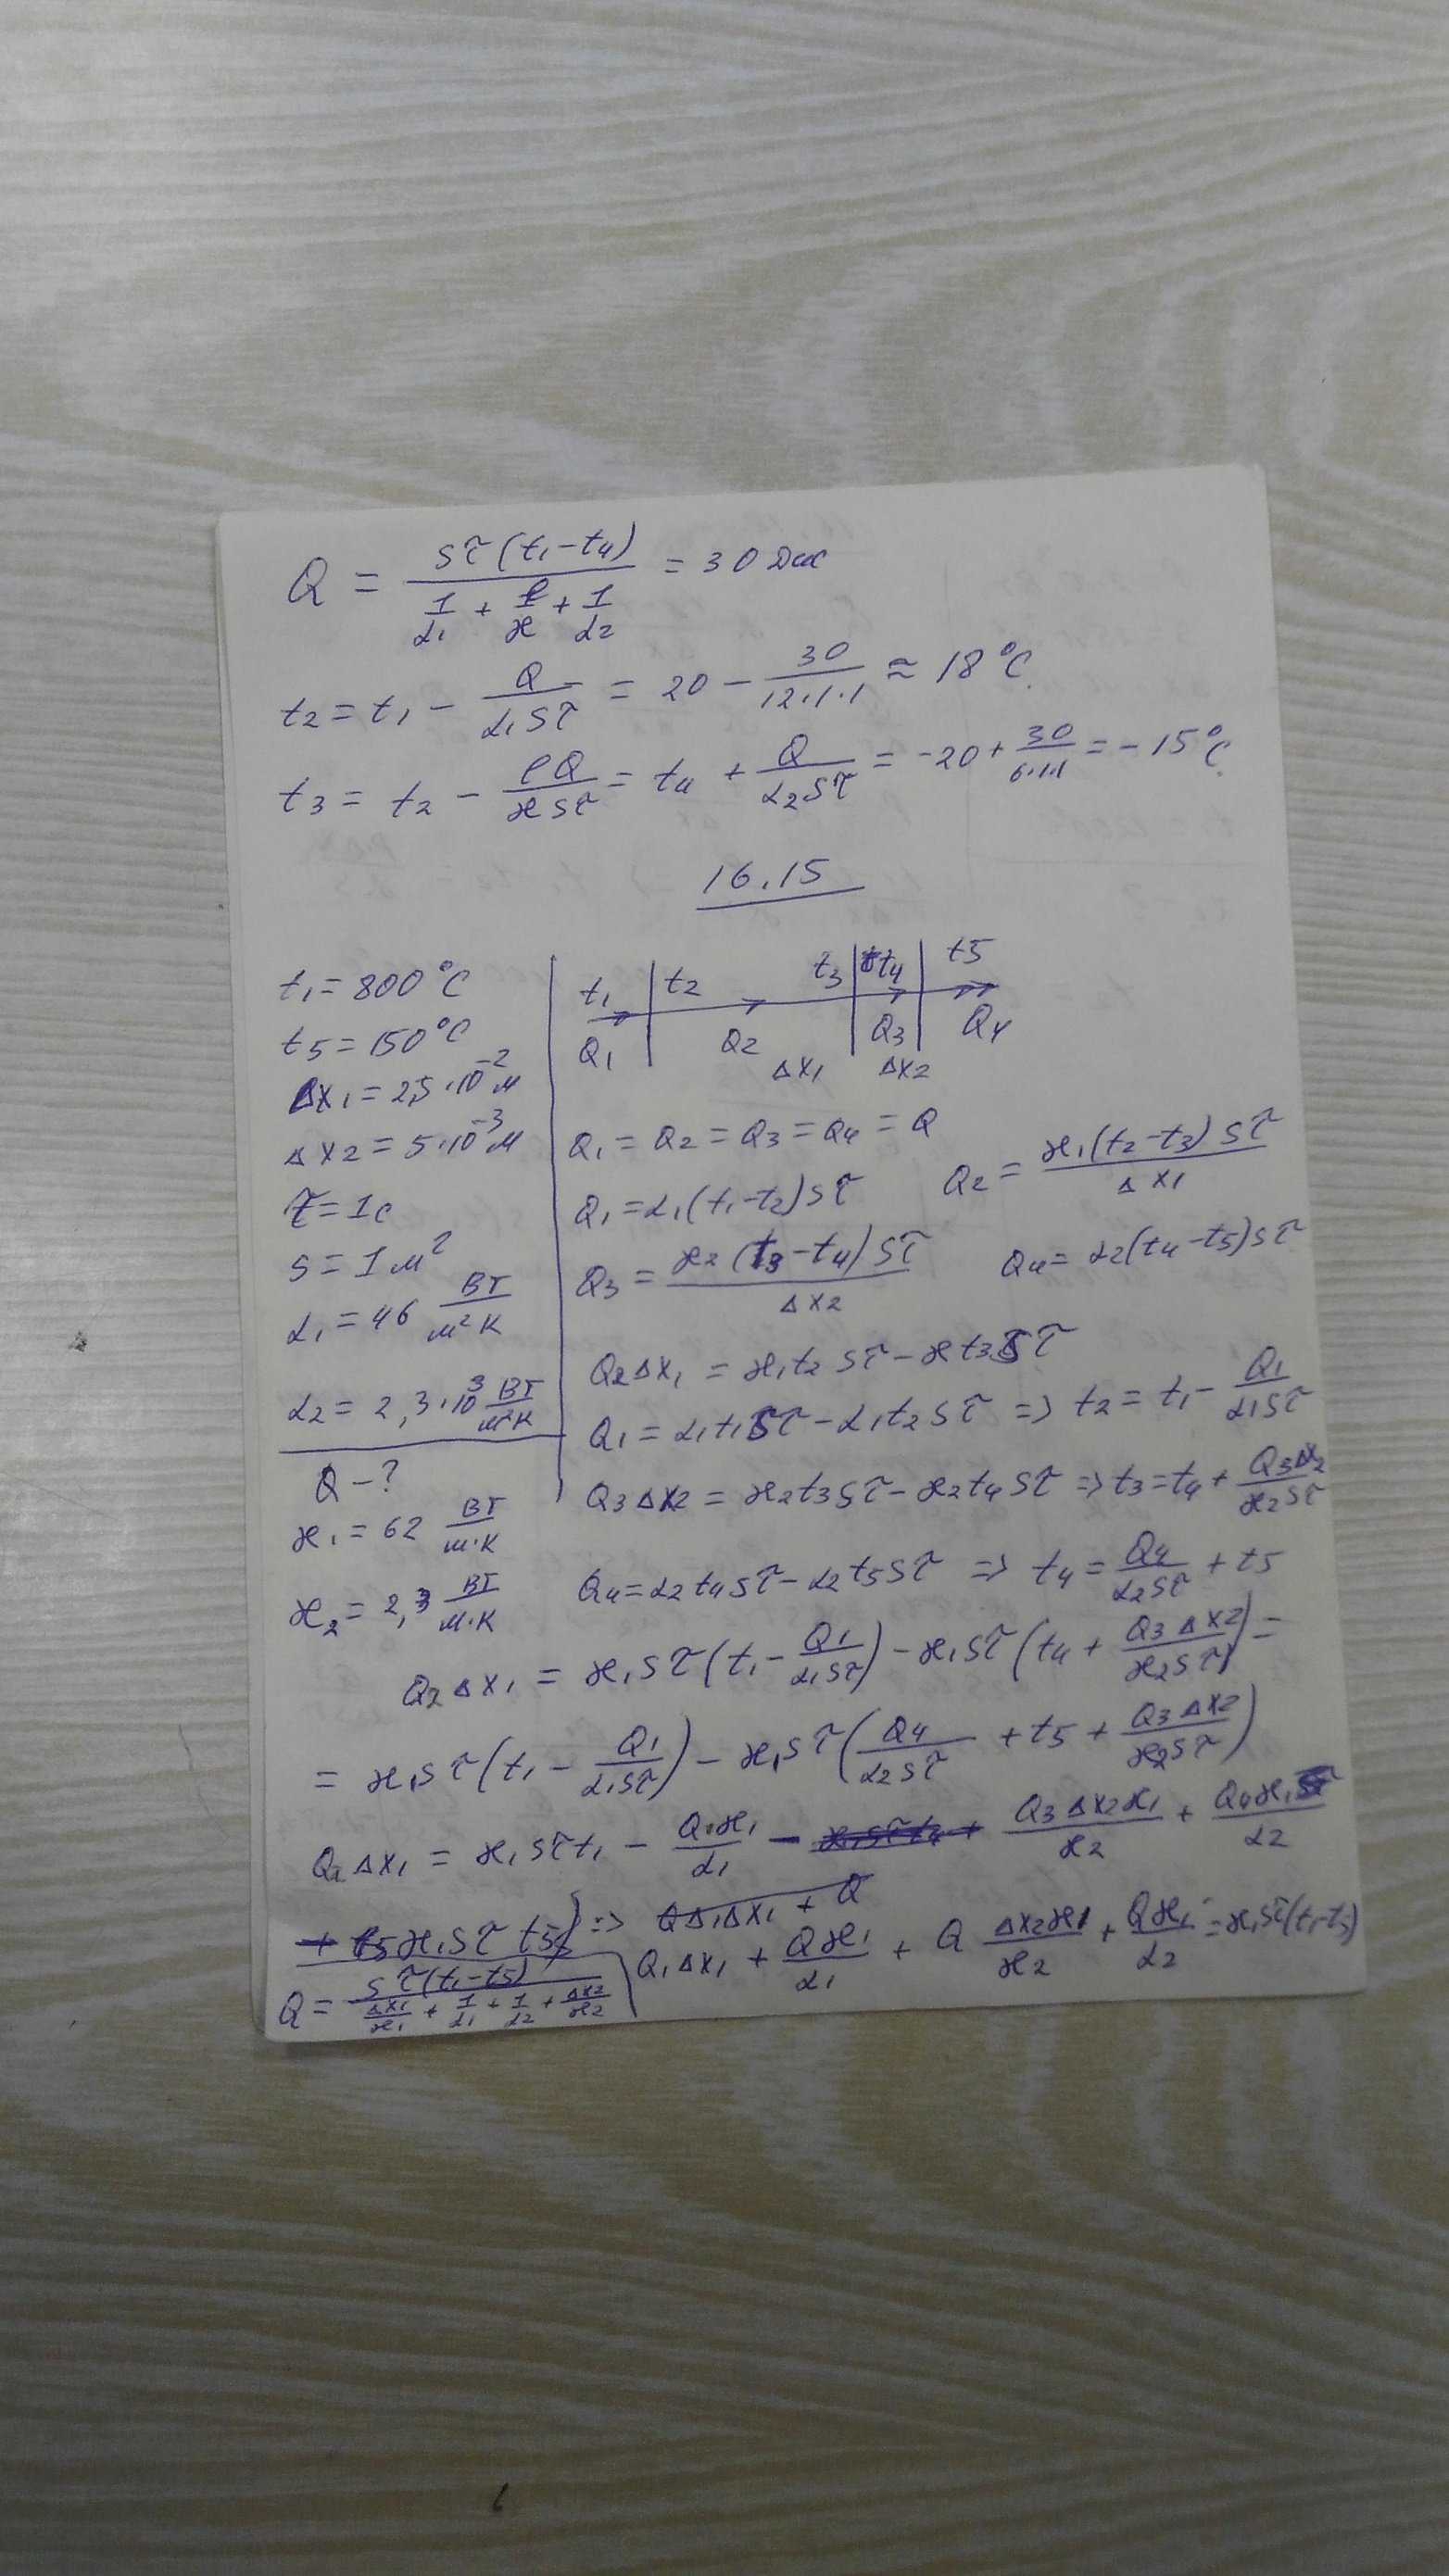 Q = Sτ(t₁-t₄) / (1/α₁ + ℓ/ϰ + 1/α₂) = 30 Дж
t₂ = t₁ - Q/(α₁Sτ) = 20 - 30/(12·1·1) ≈ 18°C
t₃ = t₂ - ℓQ/(ϰSτ) = t₄ + Q/(α₂Sτ) = -20 + 30/(6·1·1) = -15°C
16.15
t₁ = 800°C
t₅ = 150°C
Δx₁ = 2,5·10⁻² м
Δx₂ = 5·10⁻³ м
τ = 1с
S = 1 м²
α₁ = 46 Вт/(м²К)
α₂ = 2,3·10³ Вт/(м²К)
Q - ?
ϰ₁ = 62 Вт/(м·К)
ϰ₂ = 2,3 Вт/(м·К)
t₁ t₂ t₃ t₄ t₅
Q₁ Q₂ Q₃ Q₄
Δx₁ Δx₂
Q₁ = Q₂ = Q₃ = Q₄ = Q
Q₁ = α₁(t₁-t₂)Sτ Q₂ = ϰ₁(t₂-t₃)Sτ/Δx₁
Q₃ = ϰ₂(t₃-t₄)Sτ/Δx₂ Q₄ = α₂(t₄-t₅)Sτ
Q₂Δx₁ = ϰ₁t₂Sτ - ϰt₃Sτ
Q₁ = α₁t₁Sτ - α₁t₂Sτ => t₂ = t₁ - Q₁/(α₁Sτ)
Q₃Δx₂ = ϰ₂t₃Sτ - ϰ₂t₄Sτ => t₃ = t₄ + Q₃Δx₂/(ϰ₂Sτ)
Q₄ = α₂t₄Sτ - α₂t₅Sτ => t₄ = Q₄/(α₂Sτ) + t₅
Q₂Δx₁ = ϰ₁Sτ(t₁ - Q₁/(α₁Sτ)) - ϰ₁Sτ(t₄ + Q₃Δx₂/(ϰ₂Sτ)) =
= ϰ₁Sτ(t₁ - Q₁/(α₁Sτ)) - ϰ₁Sτ(Q₄/(α₂Sτ) + t₅ + Q₃Δx₂/(ϰ₂Sτ))
Q₂Δx₁ = ϰ₁Sτt₁ - Q₁ϰ₁/α₁ - Q₃Δx₂ϰ₁/ϰ₂ + Q₄ϰ₁/α₂
+ ϰ₁Sτt₅) =>
Q₁Δx₁ + Qϰ₁/α₁ + Q Δx₂ϰ₁/ϰ₂ + Qϰ₁/α₂ = ϰ₁Sτ(t₁-t₅)
Q = Sτ(t₁-t₅) / (Δx₁/ϰ₁ + 1/α₁ + 1/α₂ + Δx₂/ϰ₂)